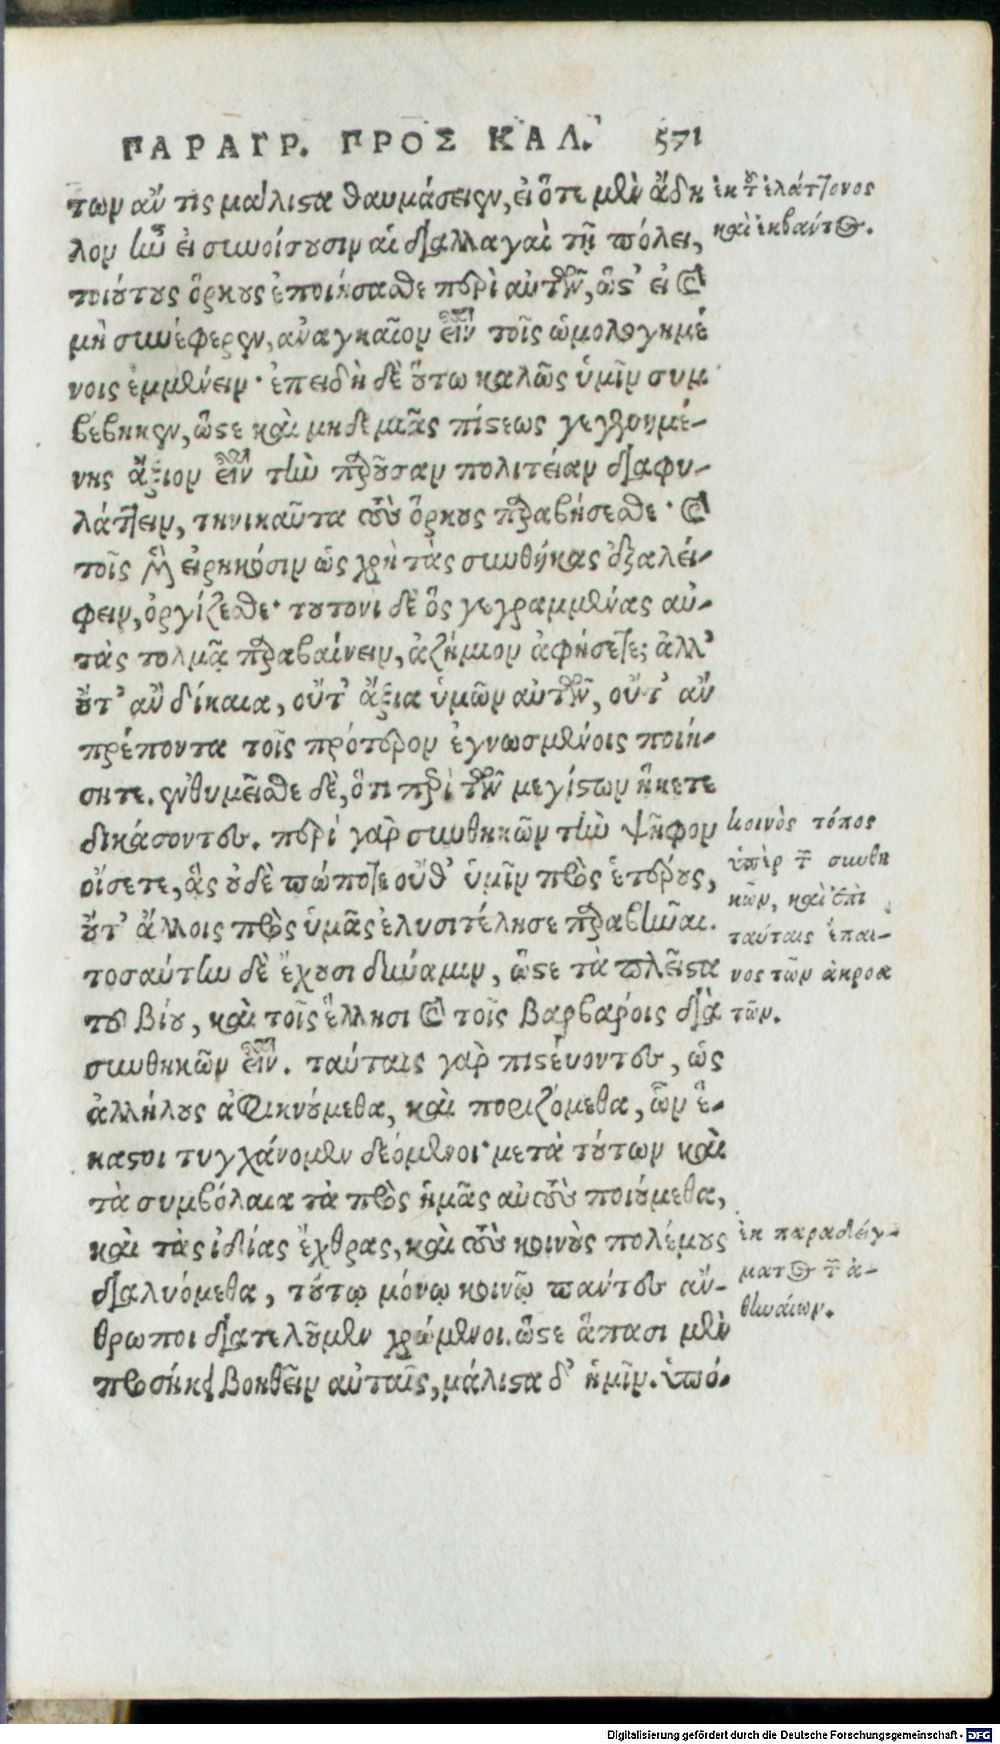 ΠΑΡΑΓΡ. ΠΡΟΣ ΚΑΛ. 571
των ἄν τις μάλιστα θαυμάσειεν, εἰ ὅτε μὲν ἄδη
λον ἦν εἰ συνοίσουσιν αἱ διαλλαγαὶ τῇ πόλει,
τοιούτους ὅρκους ἐποιήσασθε περὶ αὐτῶν, ὥστ' εἰ καὶ
μὴ συνέφερεν, ἀναγκαῖον εἶναι τοῖς ὡμολογημέ
νοις ἐμμένειν· ἐπειδὴ δὲ οὕτω καλῶς ὑμῖν συμ
βέβηκεν, ὥστε καὶ μηδεμιᾶς πίστεως γεγενημέ-
νης ἄξιον εἶναι τὴν παροῦσαν πολιτείαν διαφυ-
λάττειν, τηνικαῦτα τοὺς ὅρκους παραβήσεσθε· καὶ
τοῖς μὲν εἰρηκόσιν ὡς χρὴ τὰς συνθήκας ἐξαλεί-
φειν, ὀργίζεσθε· τουτονὶ δὲ ὃς γεγραμμένας αὐ-
τὰς τολμᾷ παραβαίνειν, ἀζήμιον ἀφήσετε; ἀλλ'
οὔτ' ἂν δίκαια, οὔτ' ἄξια ὑμῶν αὐτῶν, οὔτ' ἂν
πρέποντα τοῖς πρότερον ἐγνωσμένοις ποιή-
σητε. ἐνθυμεῖσθε δὲ, ὅτι περὶ τῶν μεγίστων ἥκετε
δικάσοντες. περὶ γὰρ συνθηκῶν τὴν ψῆφον
οἴσετε, ἃς οὐδὲ πώποτε οὔθ' ὑμῖν πρὸς ἑτέρους,
οὔτ' ἄλλοις πρὸς ὑμᾶς ἐλυσιτέλησε παραβῆναι.
τοσαύτην δὲ ἔχουσι δύναμιν, ὥστε τὰ πλεῖστα
τοῦ βίου, καὶ τοῖς ἕλλησι καὶ τοῖς βαρβάροις διὰ
συνθηκῶν εἶναι. ταύταις γὰρ πιστεύοντες, ὡς
ἀλλήλους ἀφικνούμεθα, καὶ ποριζόμεθα, ὧν ἕ-
καστοι τυγχάνομεν δεόμενοι· μετὰ τούτων καὶ
τὰ συμβόλαια τὰ πρὸς ἡμᾶς αὐτοὺς ποιούμεθα,
καὶ τὰς ἰδίας ἔχθρας, καὶ τοὺς κοινοὺς πολέμους
διαλυόμεθα, τούτῳ μόνῳ κοινῷ πάντες ἄν-
θρωποι διατελοῦμεν χρώμενοι. ὥστε ἅπασι μὲν
προσήκει βοηθεῖν αὐταῖς, μάλιστα δ' ἡμῖν. ὑπό-
ἐκ τοῦ ἐλάττονος
καὶ ἐκβάντος.
κοινὸς τόπος
ὑπὲρ τῶν συνθη
κῶν, καὶ ἐπὶ
ταύταις ἔπαι-
νος τῶν ἀκροα
τῶν.
ἐκ παραδείγ-
ματος τῶν ἀ-
θηναίων.
Digitalisierung gefördert durch die Deutsche Forschungsgemeinschaft - DFG